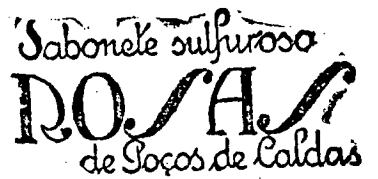 Sabonete sulfuroso
ROSAS
de Poços de Caldas